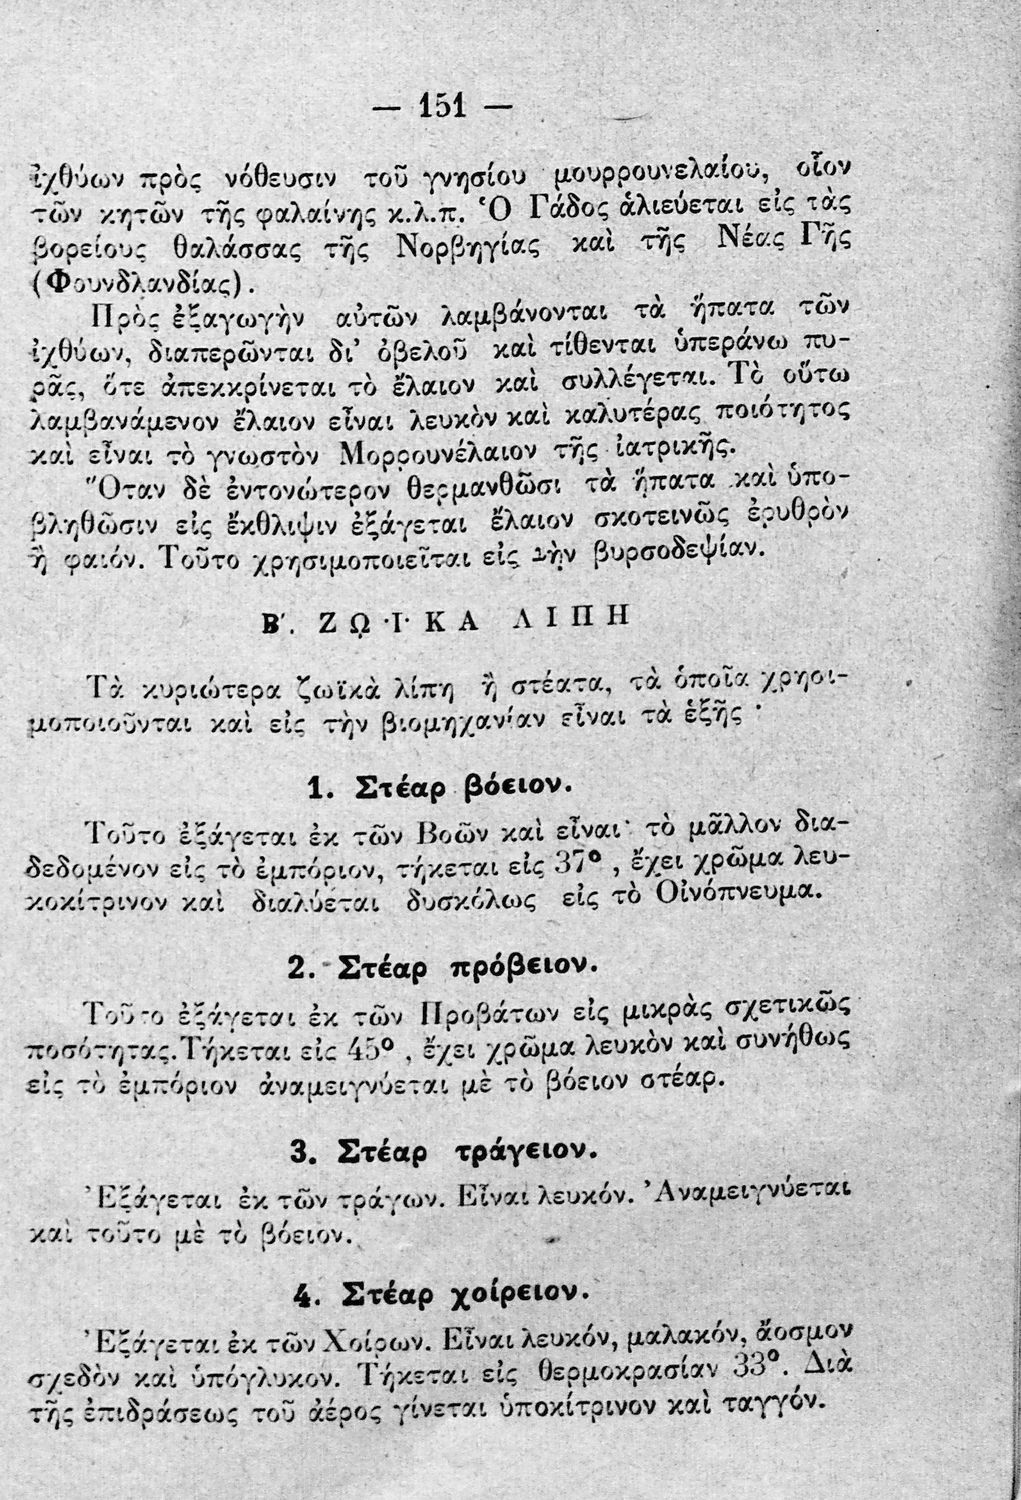 — 151 —
ἰχθύων πρὸς νόθευσιν τοῦ γνησίου μουρρουνελαίου, οἷον
τῶν κητῶν τῆς φαλαίνης κ.λ.π. Ὁ Γάδος ἁλιεύεται εἰς τὰς
βορείους θαλάσσας τῆς Νορβηγίας καὶ τῆς Νέας Γῆς
(Φουνδλανδίας).
Πρὸς ἐξαγωγὴν αὐτῶν λαμβάνονται τὰ ἥπατα τῶν
ἰχθύων, διαπερῶνται δι’ ὀβελοῦ καὶ τίθενται ὑπεράνω πυ-
ρᾶς, ὅτε ἀπεκκρίνεται τὸ ἔλαιον καὶ συλλέγεται. Τὸ οὕτω
λαμβανάμενον ἔλαιον εἶναι λευκὸν καὶ καλυτέρας ποιότητος
καὶ εἶναι τὸ γνωστὸν Μορρουνέλαιον τῆς ἰατρικῆς.
Ὅταν δὲ ἐντονώτερον θερμανθῶσι τὰ ἥπατα καὶ ὑπο-
βληθῶσιν εἰς ἔκθλιψιν ἐξάγεται ἔλαιον σκοτεινῶς ἐρυθρὸν
ἢ φαιόν. Τοῦτο χρησιμοποιεῖται εἰς τὴν βυρσοδεψίαν.
Β΄. ΖΩΪΚΑ ΛΙΠΗ
Τὰ κυριώτερα ζωϊκὰ λίπη ἢ στέατα, τὰ ὁποῖα χρησι-
μοποιοῦνται καὶ εἰς τὴν βιομηχανίαν εἶναι τὰ ἑξῆς ·
1. Στέαρ βόειον.
Τοῦτο ἐξάγεται ἐκ τῶν Βοῶν καὶ εἶναι τὸ μᾶλλον δια-
δεδομένον εἰς τὸ ἐμπόριον, τήκεται εἰς 37° , ἔχει χρῶμα λευ-
κοκίτρινον καὶ διαλύεται δυσκόλως εἰς τὸ Οἰνόπνευμα.
2. Στέαρ πρόβειον.
Τοῦτο ἐξάγεται ἐκ τῶν Προβάτων εἰς μικρὰς σχετικῶς
ποσότητας. Τήκεται εἰς 45° , ἔχει χρῶμα λευκὸν καὶ συνήθως
εἰς τὸ ἐμπόριον ἀναμειγνύεται μὲ τὸ βόειον στέαρ.
3. Στέαρ τράγειον.
Ἐξάγεται ἐκ τῶν τράγων. Εἶναι λευκόν. Ἀναμειγνύεται
καὶ τοῦτο μὲ τὸ βόειον.
4. Στέαρ χοίρειον.
Ἐξάγεται ἐκ τῶν Χοίρων. Εἶναι λευκόν, μαλακόν, ἄοσμον
σχεδὸν καὶ ὑπόγλυκον. Τήκεται εἰς θερμοκρασίαν 33°. Διὰ
τῆς ἐπιδράσεως τοῦ ἀέρος γίνεται ὑποκίτρινον καὶ ταγγόν.